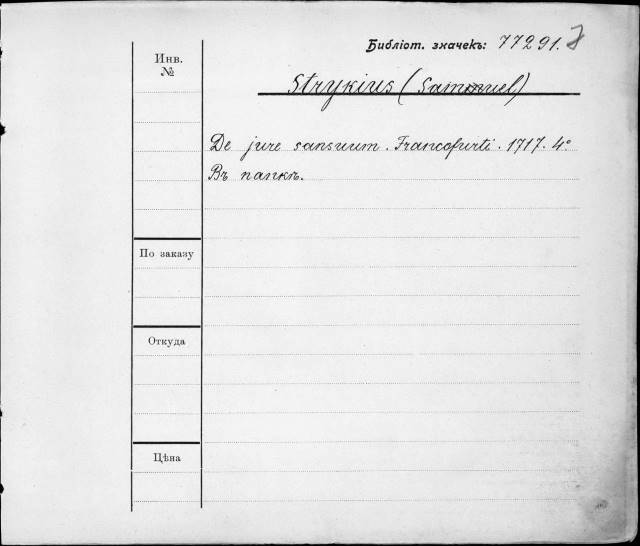 Библіот. значекъ: 77291.
Инв.
№
Strykius (Sammuel)
De jure sansuum. Francofurti. 1717. 4°
Въ папкѣ.
По заказу
Откуда
Цѣна